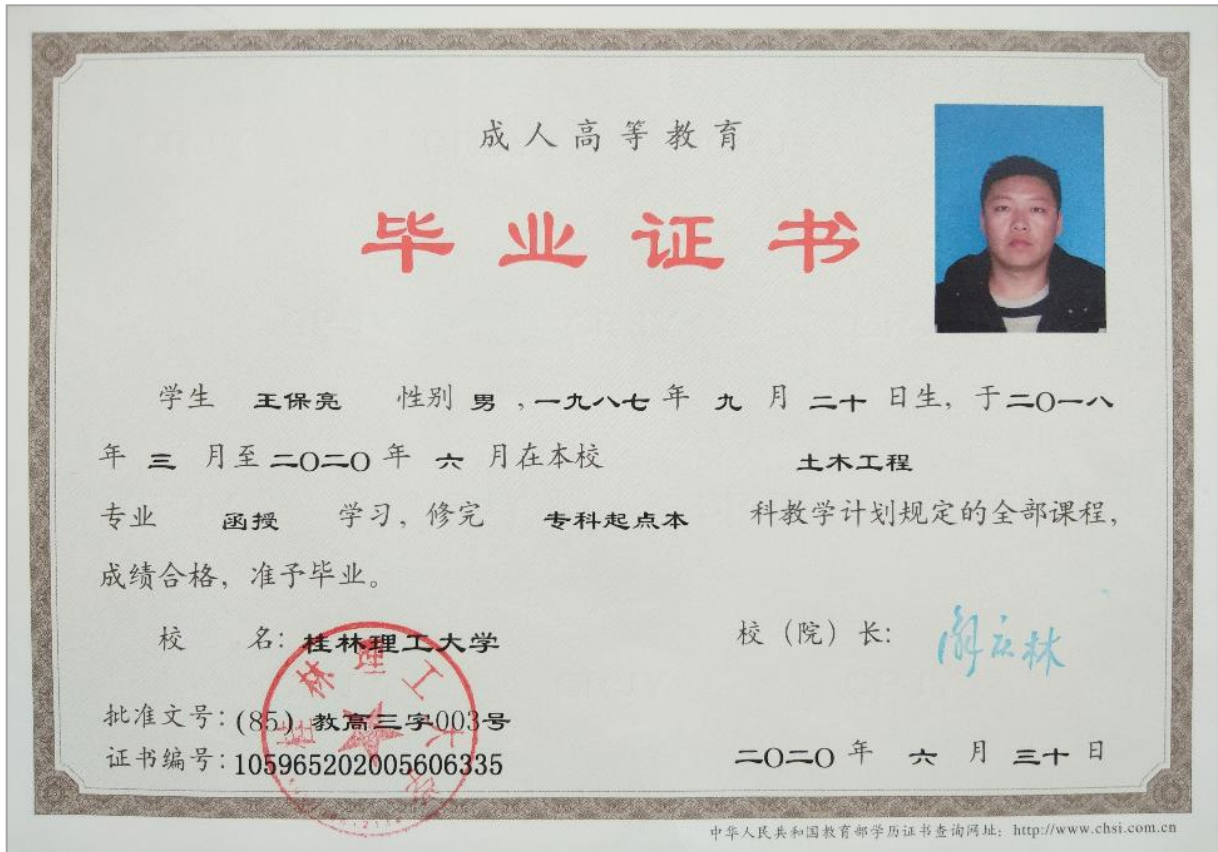 成人高等教育
毕业证书
学生 王保亮 性别 男 ,一九八七 年 九 月 二十 日生, 于二O一八
年 三 月至 二O二O 年 六 月在本校 土木工程
专业 函授 学习, 修完 专科起点本 科教学计划规定的全部课程,
成绩合格, 准予毕业。
校 名: 桂林理工大学 校 (院) 长: 解庆林
桂林理工大学
批准文号: (85) 教高三字003号
证书编号: 105965202005606335 二O二O 年 六 月 三十 日
中华人民共和国教育部学历证书查询网址: http://www.chsi.com.cn